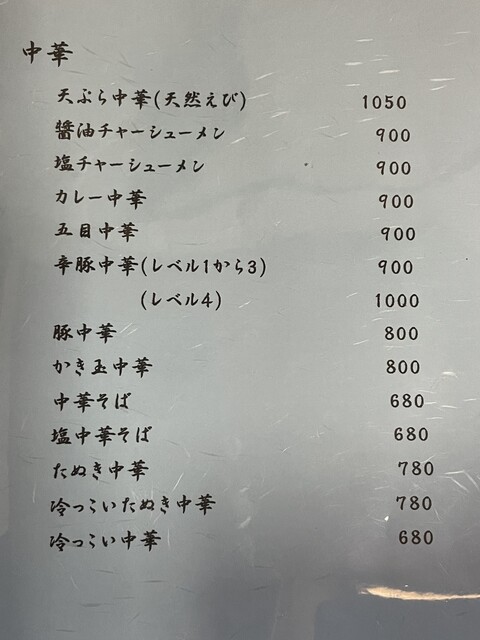 中華
天ぷら中華(天然えび) 1050
醤油チャーシューメン 900
塩チャーシューメン 900
カレー中華 900
五目中華 900
辛豚中華(レベル1から3) 900
(レベル4) 1000
豚中華 800
かき玉中華 800
中華そば 680
塩中華そば 680
たぬき中華 780
冷っこいたぬき中華 780
冷っこい中華 680